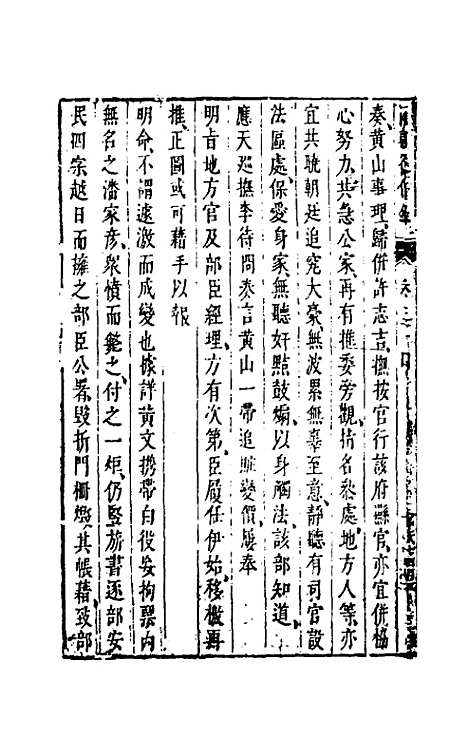 奏黃山事理歸併許志吉撫按官行該府縣官亦宜併恊
心努力共急公家再有推委旁觀指名叅處地方人等亦
宜共曉朝廷追究大豪無波累無辜至意靜聽有司官設
法區處保愛身家無聽奸㸃鼓煽以身觸法該部知道
應天廵撫李待問奏言黃山一帶追贓變價屢奉
明旨地方官及部臣經理方有次第臣履任伊始移檄再
推正圖或可藉手以報
明命不謂遽激而成變也據詳黃文携帶白役妄拘
無名之潘家彥衆憤而斃之付之一炬仍竪旂書逐部安
民四字越日而擁之部臣公署毀折門柵燬其帳藉致部